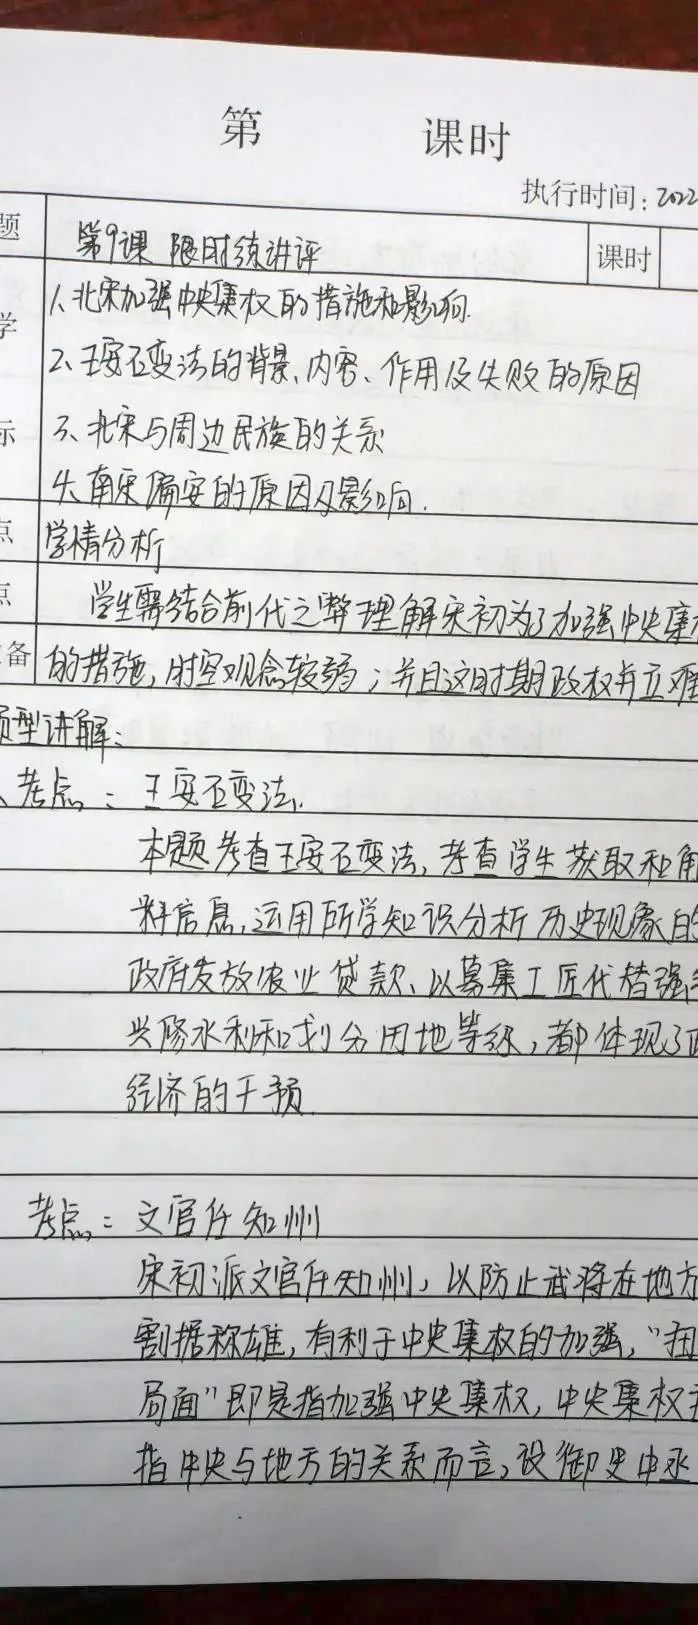 第 课时
执行时间：2022
题 第9课 限时练讲评 课时
1、北宋加强中央集权的措施和影响.
学
2、王安石变法的背景、内容、作用及失败的原因
标 3、北宋与周边民族的关系
4、南宋偏安的原因及影响.
点 学情分析
点 学生需结合前代之弊理解宋初为了加强中央集
备 的措施，时空观念较弱；并且这时期政权并立难
题型讲解：
、考点：王安石变法.
本题考查王安石变法，考查学生获取和解
料信息，运用所学知识分析历史现象的
政府发放农业贷款、以募集工匠代替强
兴修水利和划分田地等级，都体现了
经济的干预.
考点：文官任知州
宋初派文官任知州，以防止武将在地方
割据称雄，有利于中央集权的加强，“扭
局面”即是指加强中央集权，中央集权
指中央与地方的关系而言，设御史中丞